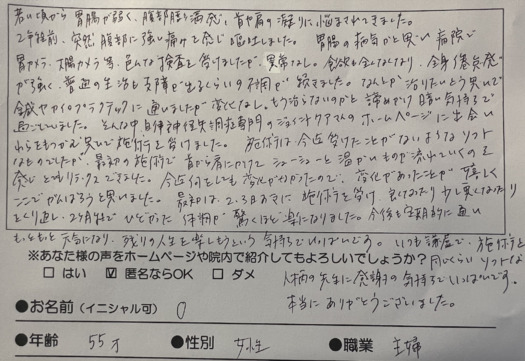 若い頃から胃腸が弱く、腹部膨満感と首や肩の凝りに悩まされてきました。
2年程前、突然腹部に強い痛みを感じ嘔吐しました。胃腸の病気かと思い病院で
胃カメラ、大腸カメラ等、色んな検査を受けましたが、異常なし。食欲も全くなくなり、全身倦怠感
が強く、普通の生活も支障が出るくらいの不調が続きました。なんとか治りたいという思いで
鍼やカイロプラクティックに通いましたが変化なし。もう治らないのかと諦めかけ暗い気持ちで
過ごしていました。そんな中自律神経失調症専門のジョイントケアさんのホームページに出会い
わらをもつかむ思いで施術を受けました。施術は今迄受けたことがないようなソフト
なものでしたが、最初の施術で首から肩にかけてシューシューと温かいものが流れていくのを
感じとてもリラックスできました。今迄何をしても変化がなかったので、変化があったことが嬉しく
ここでがんばろうと思いました。最初は、2、3日おきに施術を受け、良くなったり少し悪くなったり
をくり返し、2ヶ月程でひどかった体調が驚くほど楽になりました。今後も定期的に通い
もっともっと元気になり、残りの人生を楽しもうという気持ちでいっぱいです。いつも謙虚で、施術と
※あなた様の声をホームページや院内で紹介してもよろしいでしょうか？ 同じくらいソフトな
□ はい ☑ 匿名ならOK □ ダメ 人柄の先生に感謝の気持ちでいっぱいです。
●お名前（イニシャル可） O 本当にありがとうございました。
●年齢 55才 ●性別 女性 ●職業 主婦